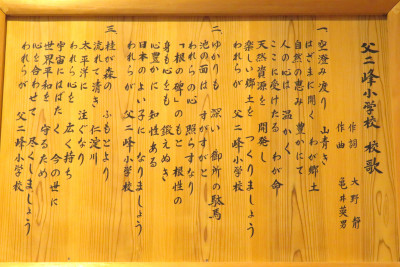 父二峰小学校 校歌
作詞 大野静
作曲 亀井英男
一、空澄み渡り 山青き
はざまに開く わが郷土
自然の恵み 豊かにて
人の心は 温かく
ここに受けたる わが命
天然資源を 開発し
楽しい郷土を つくりましょう
われらが 父二峰小学校
二、ゆかりも 深い 御所の馱馬
池の面は すがすがと
われらの心 照らすなり
「根の碑」の もと 根性の
身も心をも 鍛えぬき
心豊かに 知性ある
日本のよい子と なりましょう
われらが 父二峰小学校
三、桂が森の ふもとより
流れて清き 仁淀川
太平洋に 注ぐなり
われらも心を 広く持ち
宇宙にはばたく 今の世に
世界平和を 守るため
心を合わせて 尽くしましょう
われらが 父二峰小学校